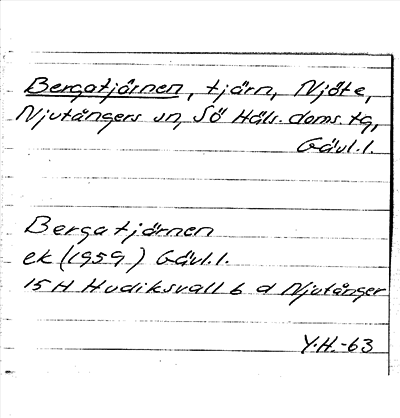 Bergatjärnen, tjärn, Njöte,
Njutångers sn, Sö Häls. doms. tg,
Gävl.l.
Bergatjärnen
ek (1959) Gävl.l.
15 H Hudiksvall 6 d Njutånger
Y.H.-63